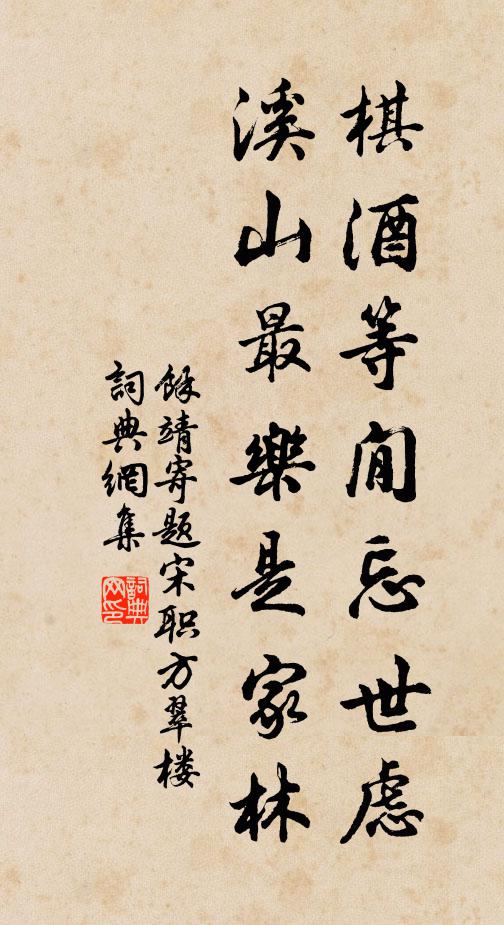 棋酒等閒忘世慮
溪山最樂是家林
餘靖寄題宋职方翠楼
詞典網集
詞典
网印